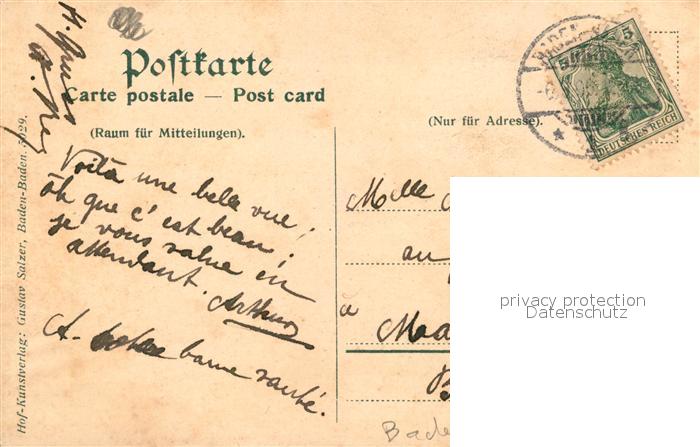 Postkarte
Carte postale — Post card
(Raum für Mitteilungen).
(Nur für Adresse).
5
DEUTSCHES REICH
BADEN
Hof-Kunstverlag: Gustav Salzer, Baden-Baden. 5029.
Voilà une belle vue;
oh que c'est beau!
je vous salue en
attendant. Arthur
A votre bonne santé.
Melle
au
à
Ma
Bade
privacy protection
Datenschutz